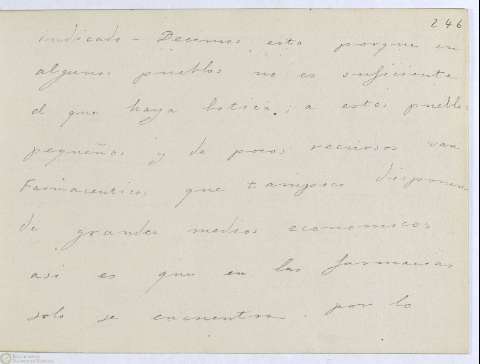 246
indicado - Decimos esto porque en
algunos pueblos no es suficiente
el que haya botica; a estos pueblos
pequeños y de pocos recursos van
Farmaceuticos que tampoco disponen
de grandes medios economicos
asi es que en las farmacias
solo se encuentra por lo